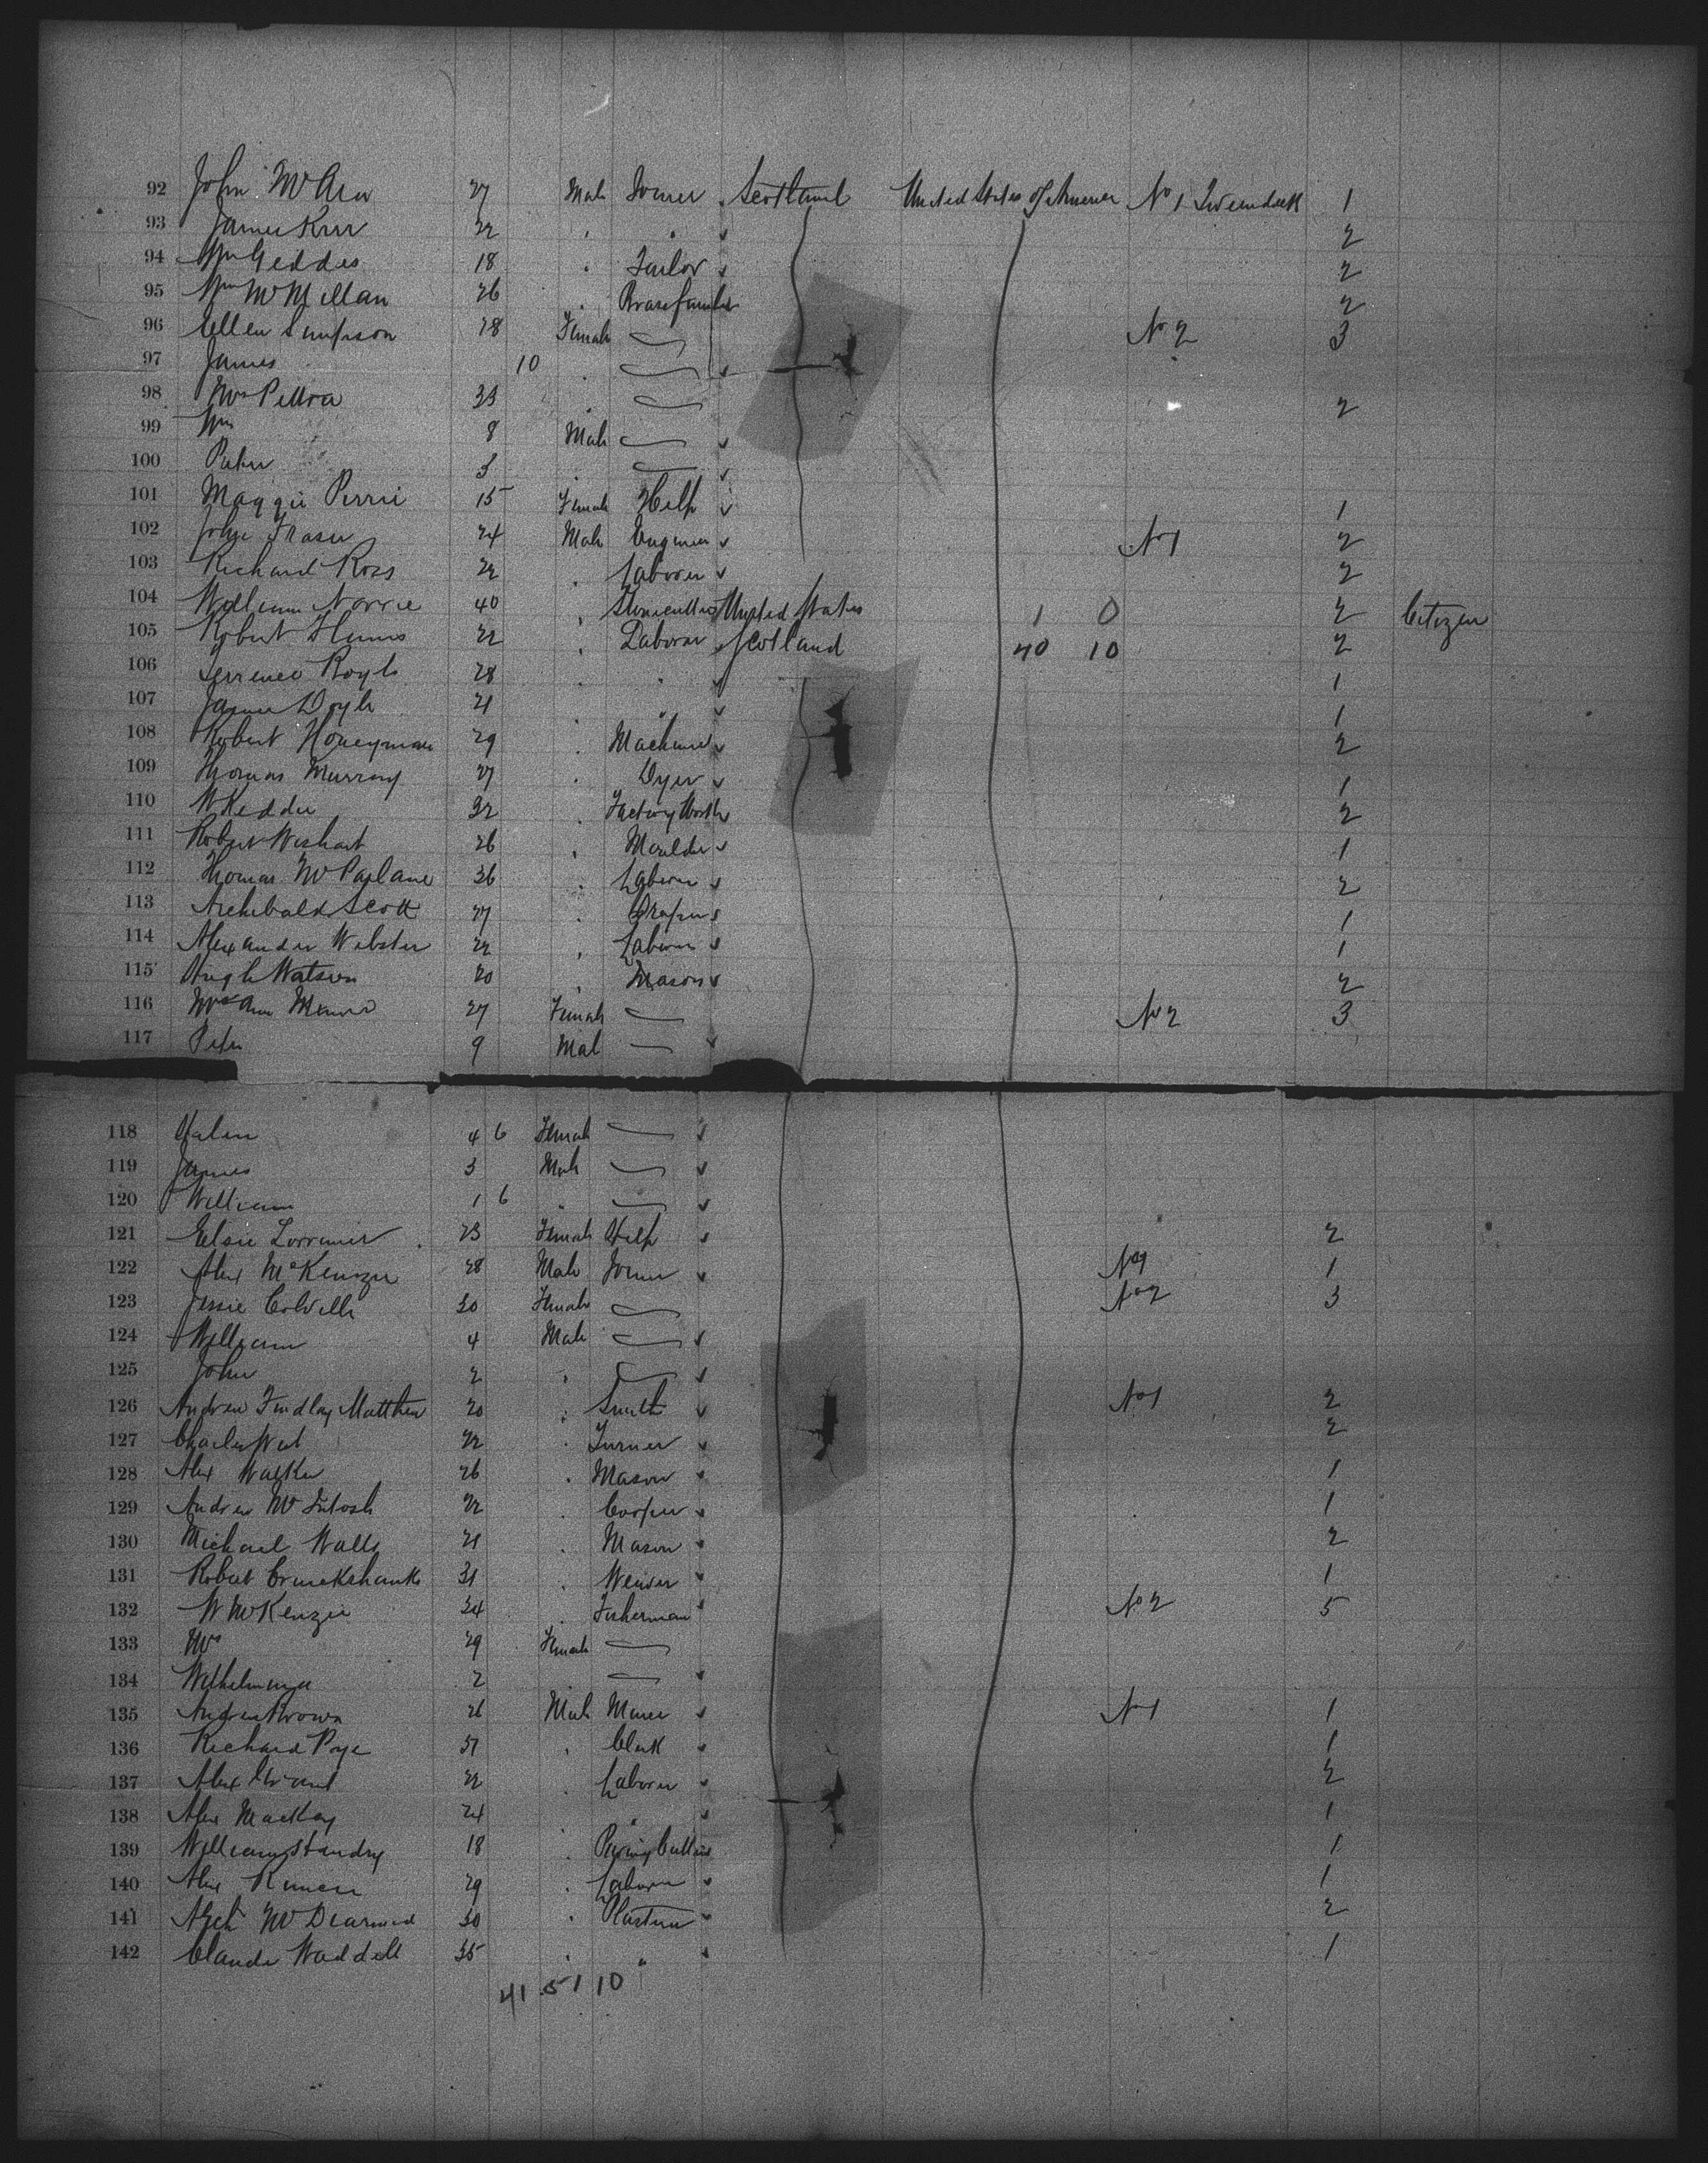 92 John McAra 27 Male Joiner Scotland United States of America No 1 Tweendeck 1
93 James Kerr 22 " " 2
94 Wm Geddes 18 " Tailor 2
95 Wm McMillan 26 " Brassfounder 2
96 Ellen Simpson 28 Female No 2 3
97 James 10 "
98 Mrs 33 " 2
99 Wm 8 Male
100 Peter 3 "
101 Maggie Perrie 15 Female Help 1
102 John Fraser 24 Male Engineer No 1 2
103 Richard Ross 22 " Laborer 2
104 William Norrie 40 " Stonecutter United States 1 0 2 Citizen
105 Robert 22 " Laborer Scotland 40 10 2
106 28 " " 1
107 James Doyle 21 " " 1
108 Robert Honeyman 29 " Machinist 2
109 Thomas Murray 27 " Dyer 1
110 W Keddie 32 " Factory Worker 2
111 Robert Wishart 26 " Moulder 1
112 Thomas McParlane 36 " Laborer 2
113 Archibald Scott 27 " Draper 1
114 Alexander Webster 22 " Laborer 1
115 Hugh Watson 20 " Mason 2
116 Mrs Ann 27 Female No 2 3
117 Peter 9 Male
118 Helen 4 6 Female
119 James 3 Male
120 William 1 6 "
121 Elsie Lorrimer 23 Female Help 2
122 Alex McKenzie 28 Male Joiner No 1 1
123 Jessie Colville 30 Female No 2 3
124 William 4 Male
125 John 2 "
126 Andrew Findlay Matthew 20 " Smith No 1 2
127 Charles West 22 " Turner 2
128 Alex Walker 26 " Mason 1
129 Andrew McIntosh 22 " Cooper 1
130 Michael Walls 21 " Mason 2
131 Robert Cruickshank 31 " Weaver 1
132 W McKenzie 34 " Fisherman No 2 5
133 Mrs 29 Female
134 Wilhelmina 2
135 Andrew Brown 26 Male Miner No 1 1
136 Richard Pope 37 " Clerk 1
137 Alex Grant 22 " Laborer 2
138 Alex Mackay 24 " " 1
139 William 18 " 1
140 Alex 29 " Laborer 1
141 Arch McDiarmid 30 " Plasterer 2
142 Claude Waddell 35 " " 1
41 51 10